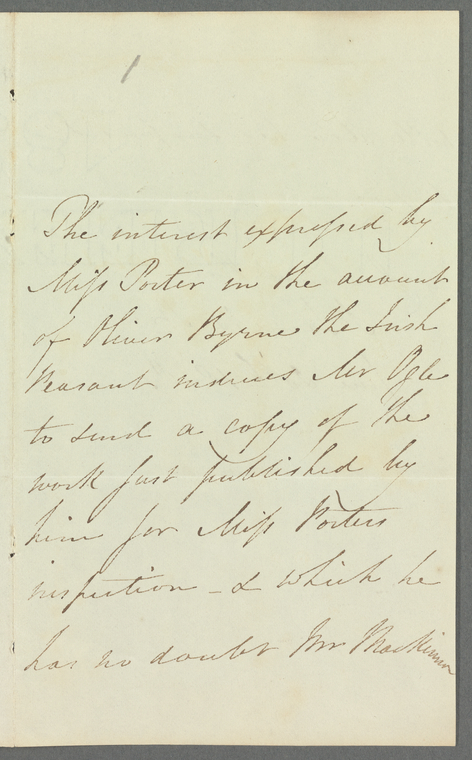 1
The interest expressed by
Miss Porter in the account
of Oliver Byrne the Irish
Peasant induces Mr Ogle
to send a copy of the
work just published by
him for Miss Porters
inspection - & which he
has no doubt Mr MacKinnon